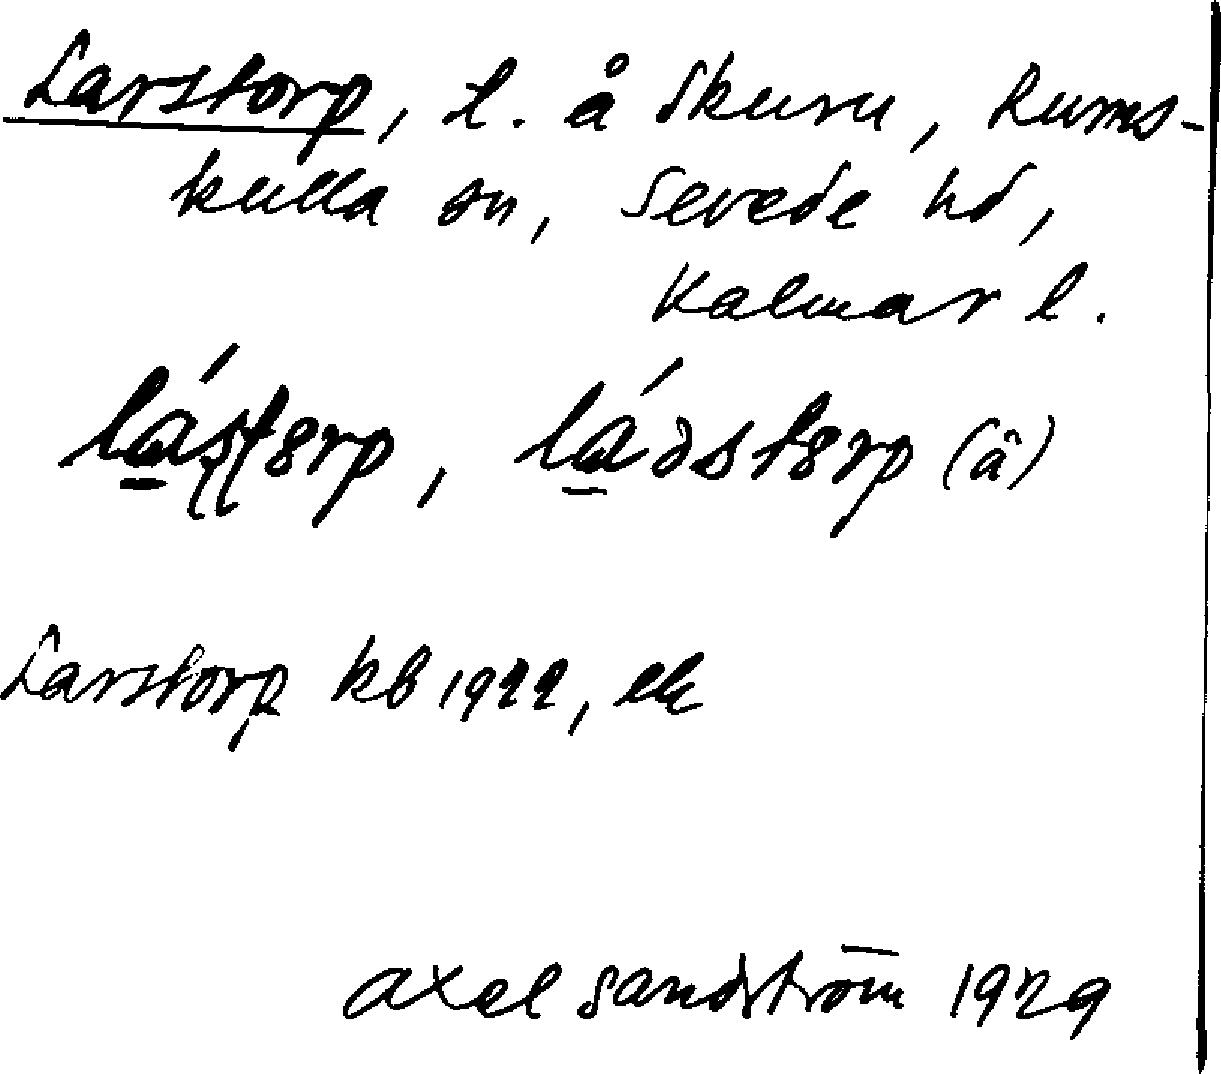 Larstorp, l. å Skuru, Rums-
kulla sn, Sevede hd,
Kalmar l.
lástorp, ládstorp (â)
Larstorp kb 1922, ek
Axel Sandström 1929